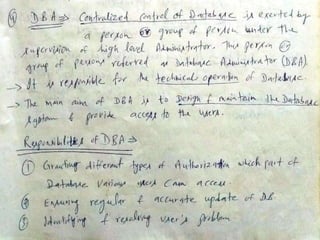 ④ DBA ⇒ Centralized control of Database is exerted by
a person or group of person under the
supervision of high level Administrator. This person or
group of persons referred as Database Administrator (DBA)
→ It is responsible for the technical operation of Database.
→ The main aim of DBA is to Design & maintain the Database
system & provide access to the users.
Responsibilities of DBA ⇒
① Granting different types of Authorization which part of
Database various users can access.
② Ensuring regular & accurate update of DB.
③ Identifying & resolving user's problem